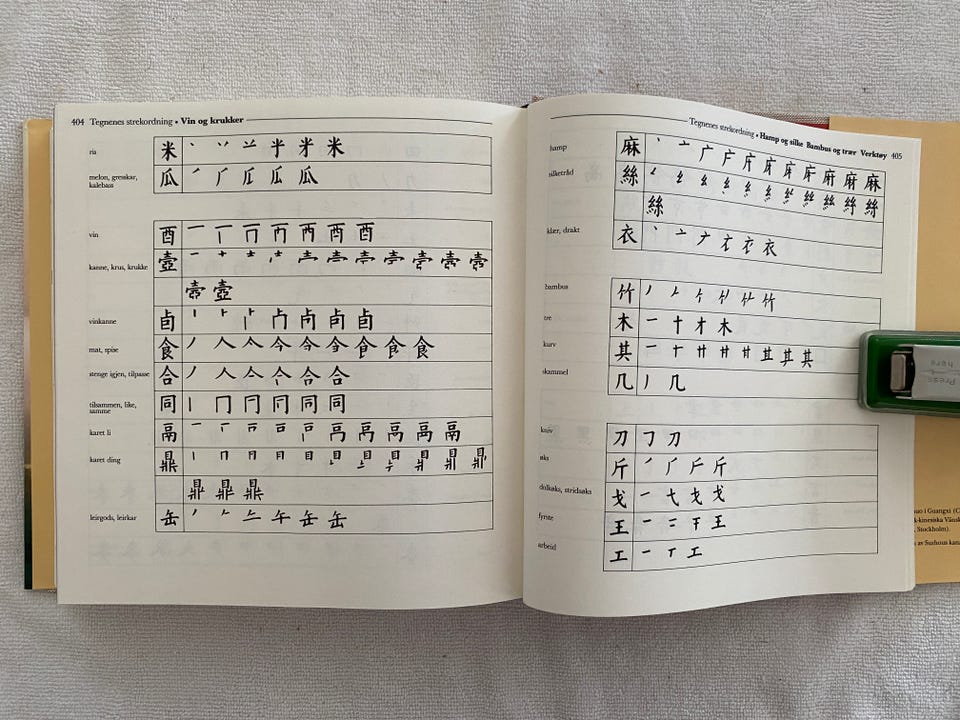 404 Tegnenes strekordning • Vin og krukker
ris 米 丶 丷 䒑 半 米 米
melon, gresskar,
kalebass 瓜
vin 酉 一 丅 酉
kanne, krus, krukke 壺 一 十 士 壺
vinkanne 卣 丨 卜 卣
mat, spise 食 丿 人 亼 今 食
stenge igjen, tilpasse 合 丿 人 亼 合 合
tilsammen, like,
samme 同 丨 冂 同 同
karet li 鬲 一 鬲
karet ding 鼎 丨 冂 月 目 目 鼎
leirgods, leirkar 缶 丿 𠂉 午 缶 缶
Tegnenes strekordning • Hamp og silke Bambus og trær Verktøy 405
hamp 麻 丶 亠 广 麻 麻
silketråd 絲 絲
絲
klær, drakt 衣 丶 亠 衣
bambus 竹 丿 竹
tre 木 一 十 才 木
kurv 其 一 十 廿 其 其
skammel 几 丿 几
kniv 刀 𠃌 刀
øks 斤 丿 厂 斤
dolkøks, stridsøks 戈 一 弋 戈 戈
fyrste 王 一 二 干 王
arbeid 工 一 丅 工
Press
here
suo i Guangxi (
k-kinesiska Vänsk
, Stockholm).
av Suzhous kana